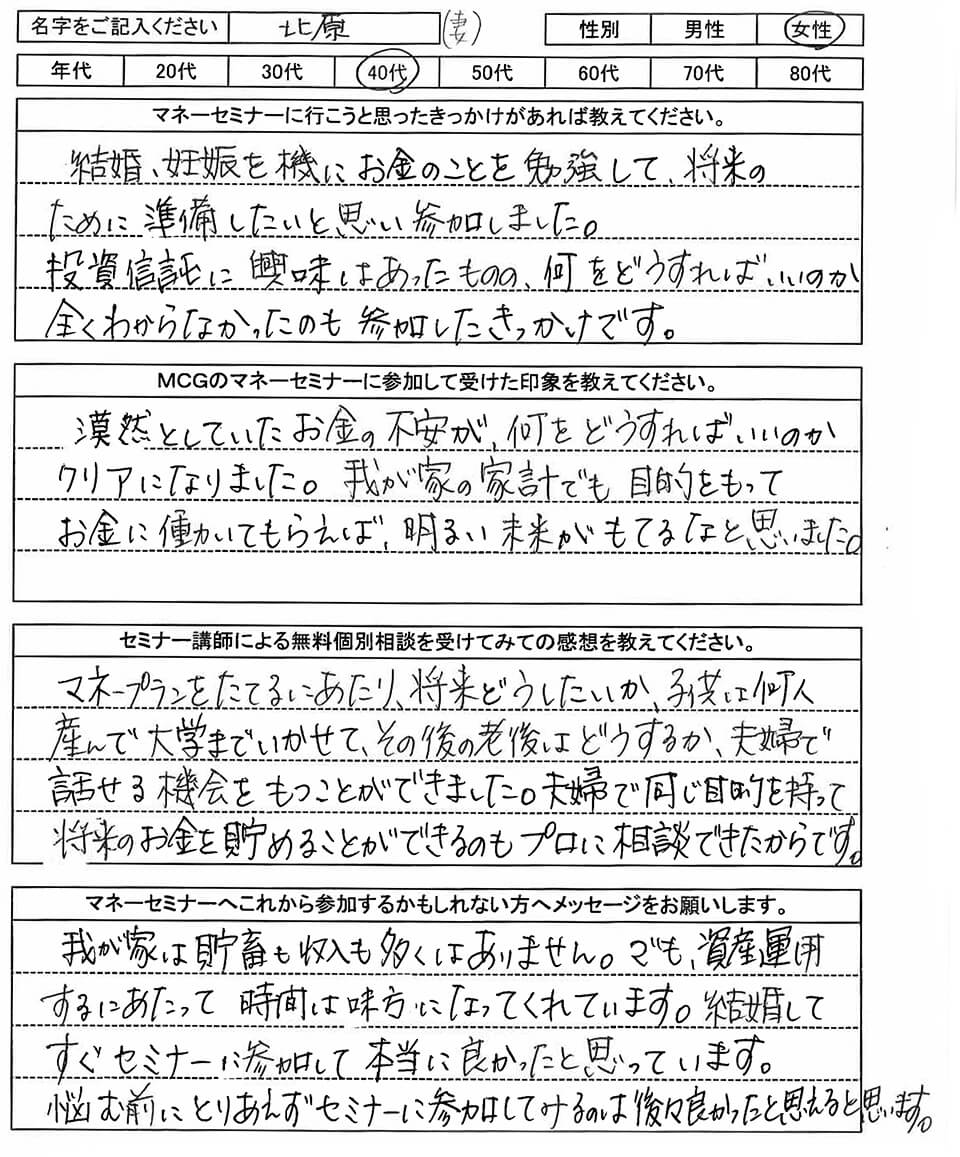 名字をご記入ください 北原 (妻) 性別 男性 女性
年代 20代 30代 40代 50代 60代 70代 80代
マネーセミナーに行こうと思ったきっかけがあれば教えてください。
結婚、妊娠を機にお金のことを勉強して、将来の
ために準備したいと思い参加しました。
投資信託に興味はあったものの、何をどうすればいいのか
全くわからなかったのも参加したきっかけです。
MCGのマネーセミナーに参加して受けた印象を教えてください。
漠然としていたお金の不安が、何をどうすればいいのか
クリアになりました。我が家の家計でも目的をもって
お金に働かいてもらえば、明るい未来がもてるなと思いました。
セミナー講師による無料個別相談を受けてみての感想を教えてください。
マネープランをたてるにあたり、将来どうしたいか、子供は何人
産んで大学までいかせて、その後の老後はどうするか、夫婦で
話せる機会をもつことができました。夫婦で同じ目的を持って
将来のお金を貯めることができるのもプロに相談できたからです。
マネーセミナーへこれから参加するかもしれない方へメッセージをお願いします。
我が家は貯畜も収入も多くはありません。でも、資産運用
するにあたって時間は味方になってくれています。結婚して
すぐセミナーに参加して本当に良かったと思っています。
悩む前にとりあえずセミナーに参加してみるのは後々良かったと思えると思います。